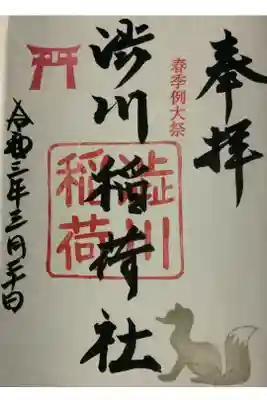 奉拝
春季例大祭
渋川稲荷社
澁川
稲荷
令和三年三月二十日